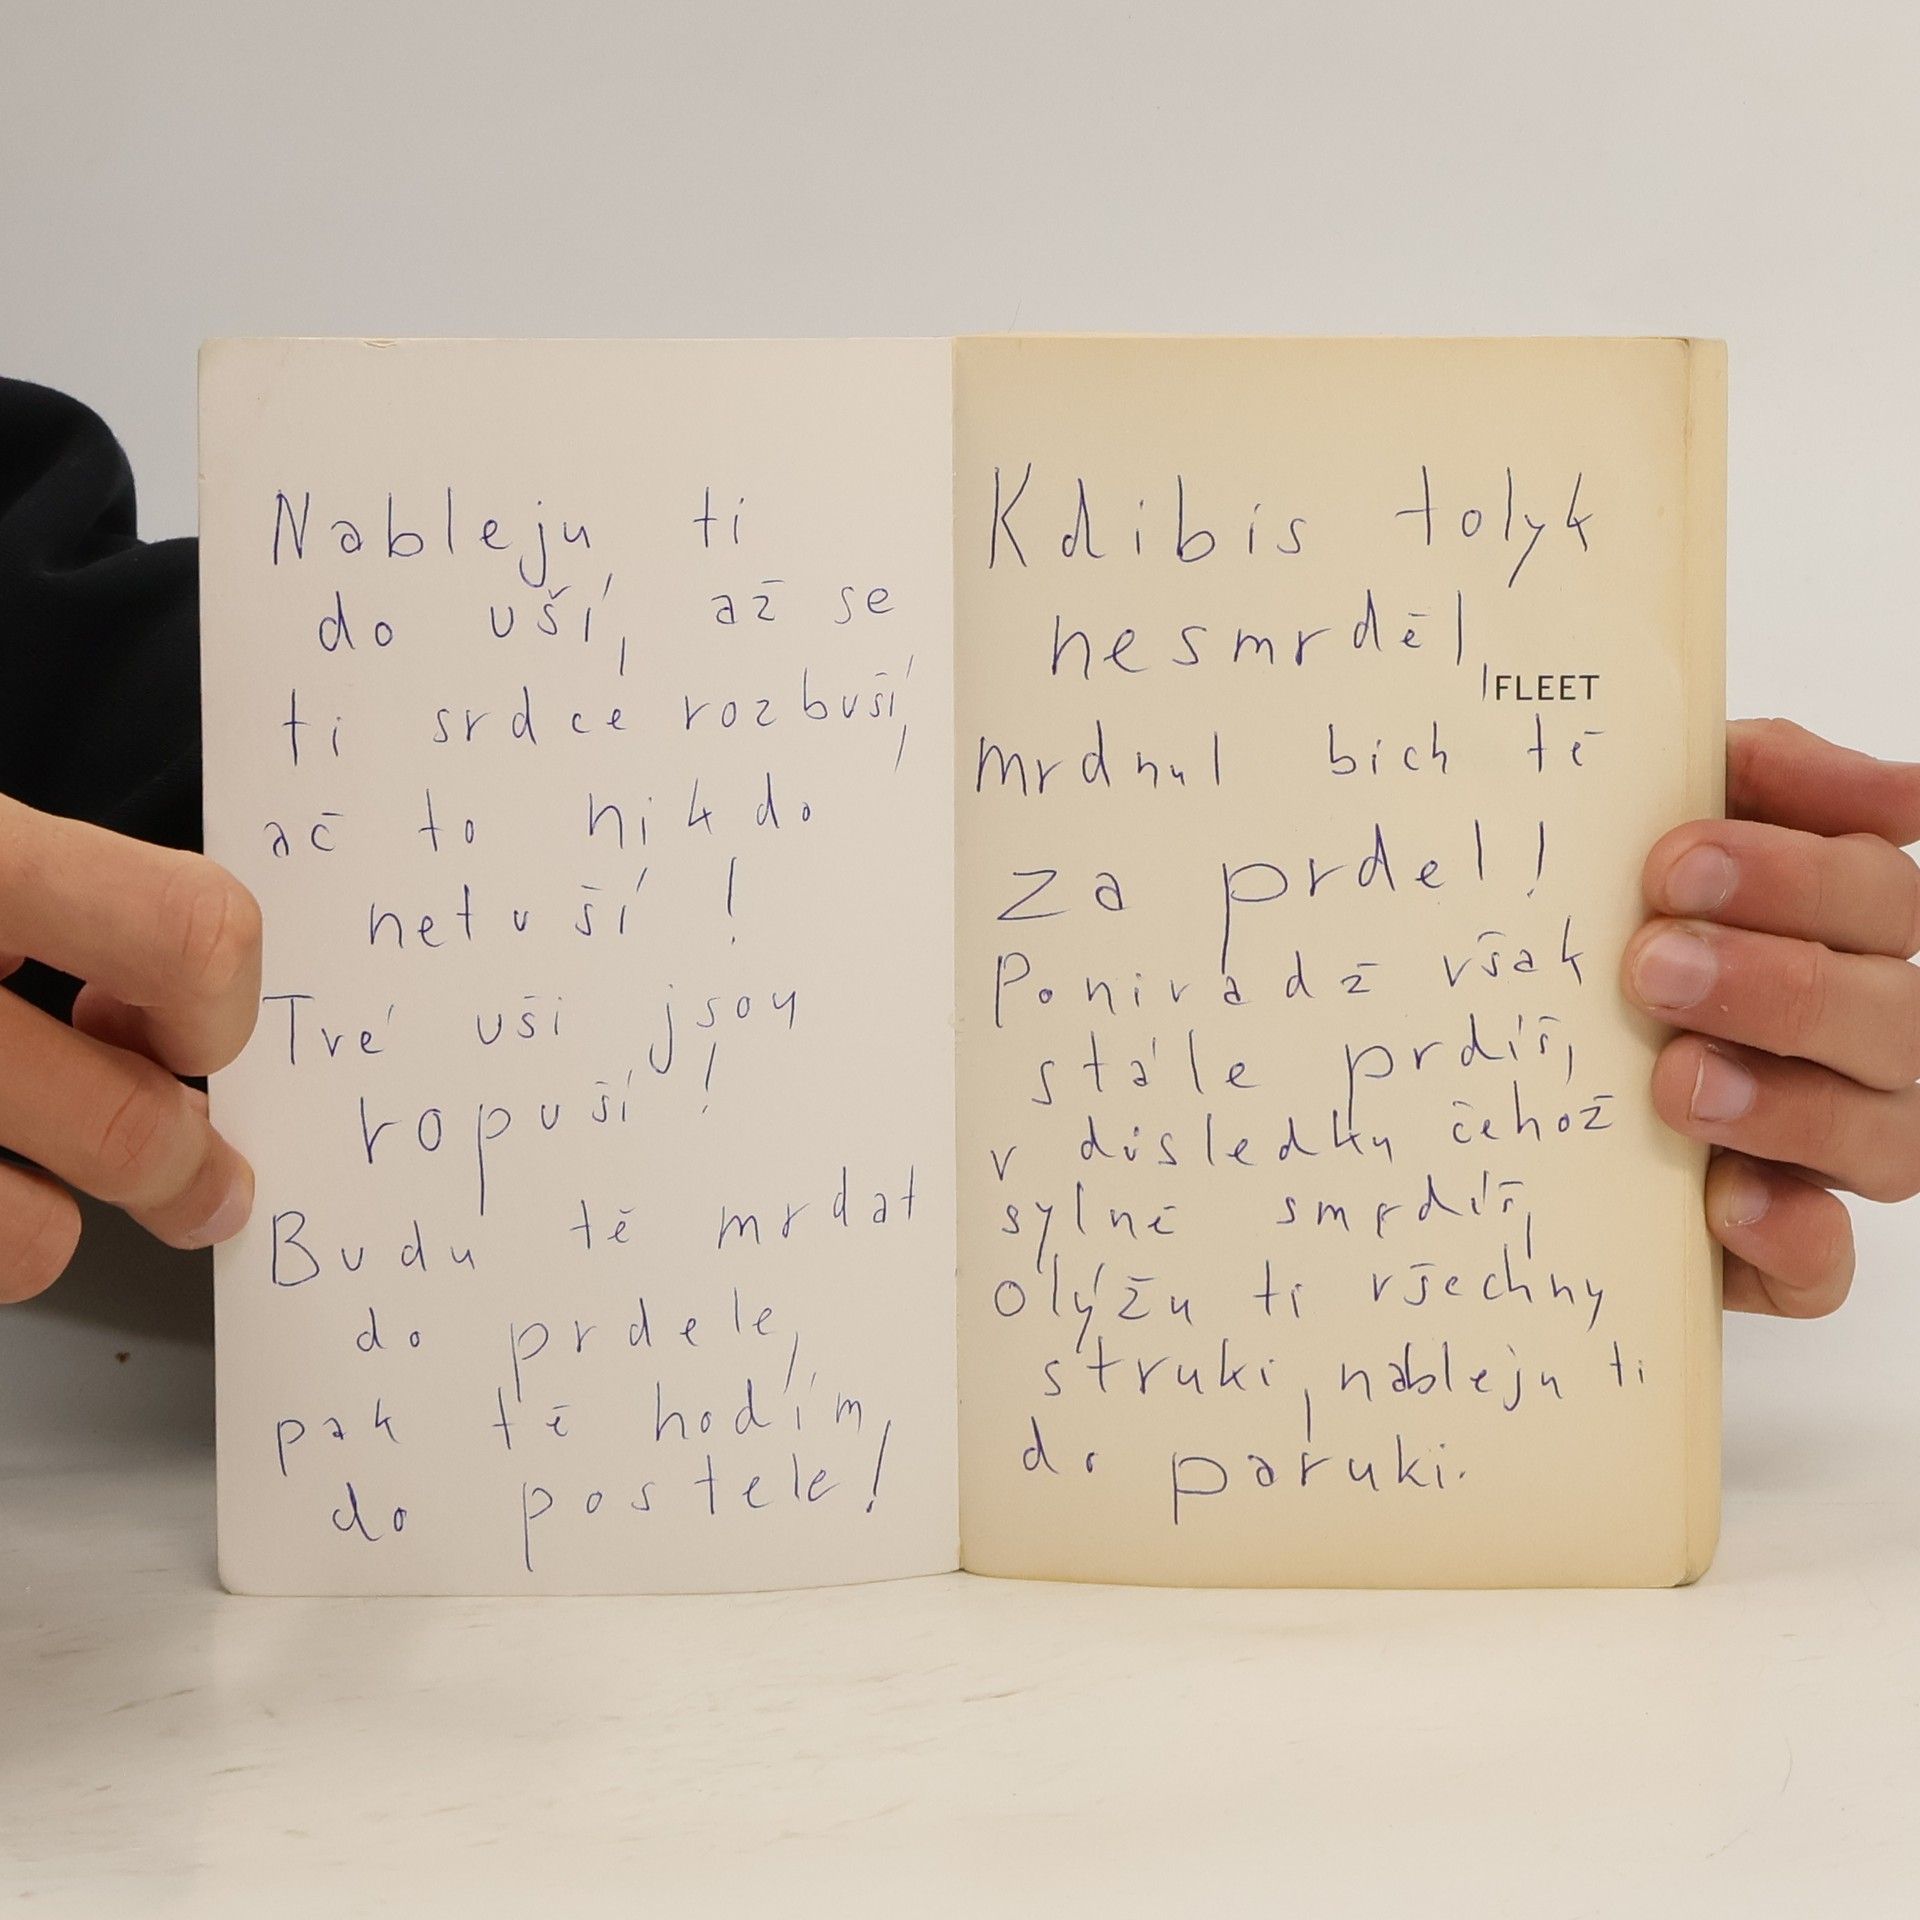 Nableju ti
do uší, až se
ti srdce rozbuší,
ač to nikdo
netuší!
Tvé uši jsou
ropuší!
Budu tě mrdat
do prdele,
pak tě hodím
do postele!
Kdibis tolyk
nesmrděl,
FLEET
mrdnul bich tě
za prdel!
Ponivadž však
stále prdíš,
v dúsledku čehož
sylně smrdíš,
olýžu ti všechny
struki, nableju ti
do paruki.